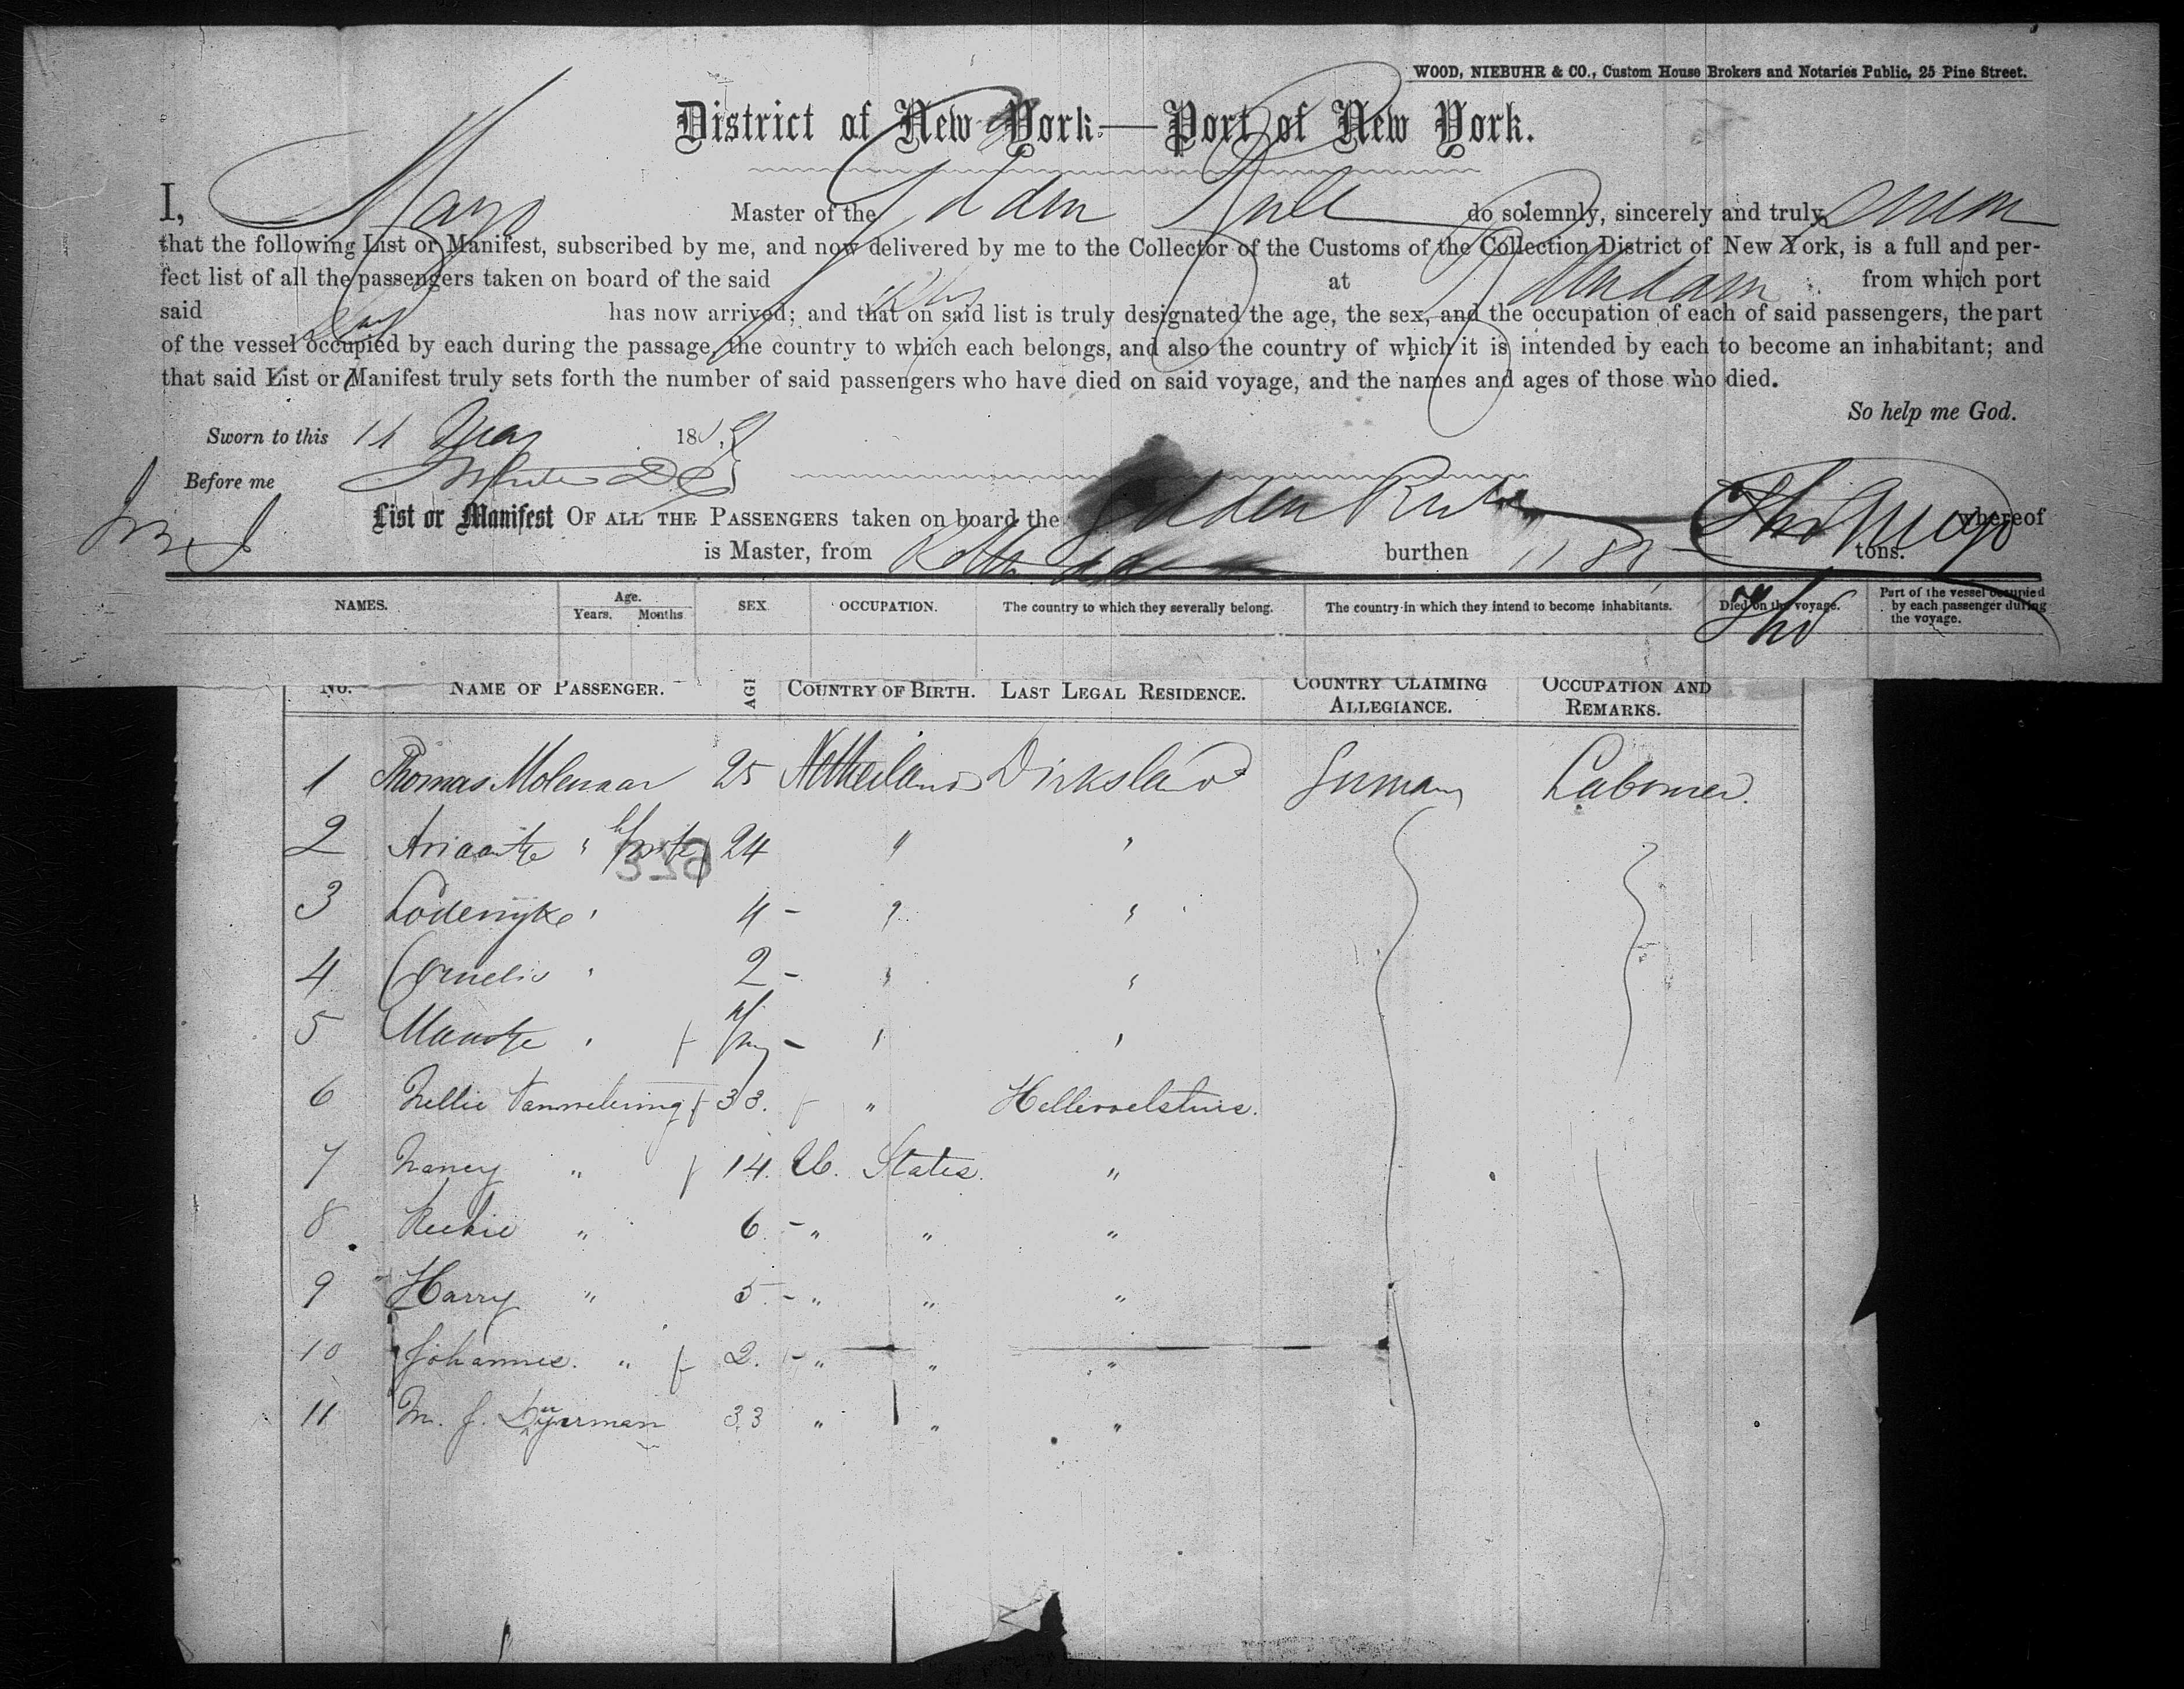 WOOD, NIEBUHR & CO., Custom House Brokers and Notaries Public, 25 Pine Street.
District of New York—Port of New York.
I, Mayo Master of the Golden Rule do solemnly, sincerely and truly, swear
that the following List or Manifest, subscribed by me, and now delivered by me to the Collector of the Customs of the Collection District of New York, is a full and per-
fect list of all the passengers taken on board of the said at Rotterdam from which port
said has now arrived; and that on said list is truly designated the age, the sex, and the occupation of each of said passengers, the part
of the vessel occupied by each during the passage, the country to which each belongs, and also the country of which it is intended by each to become an inhabitant; and
that said List or Manifest truly sets forth the number of said passengers who have died on said voyage, and the names and ages of those who died.
So help me God.
Sworn to this 11 May 18
Before me
List or Manifest OF ALL THE PASSENGERS taken on board the Golden Rule Tho Mayo whereof
is Master, from Rotterdam burthen tons.
NAMES. Age. Years. Months SEX OCCUPATION. The country to which they severally belong. The country in which they intend to become inhabitants. Died on the voyage. Part of the vessel occupied by each passenger during the voyage.
Tho
No. NAME OF PASSENGER. AGE COUNTRY OF BIRTH. LAST LEGAL RESIDENCE. COUNTRY CLAIMING ALLEGIANCE. OCCUPATION AND REMARKS.
1 Thomas Molenaar 25 Netherland Dirksland Germany Labourer.
2 Ariaantje " 24 " "
3 Lodewyke " 4 - " "
4 Cornelis " 2 - " "
5 " f - " "
6 Nellie f 33. " Hellevoetsluis.
7 Nancy " f 14. U. States. "
8 " 6 - " " "
9 Harry " 5. - " " "
10 Johannes. " f 2. - " " "
11 M. J. 33 " " "